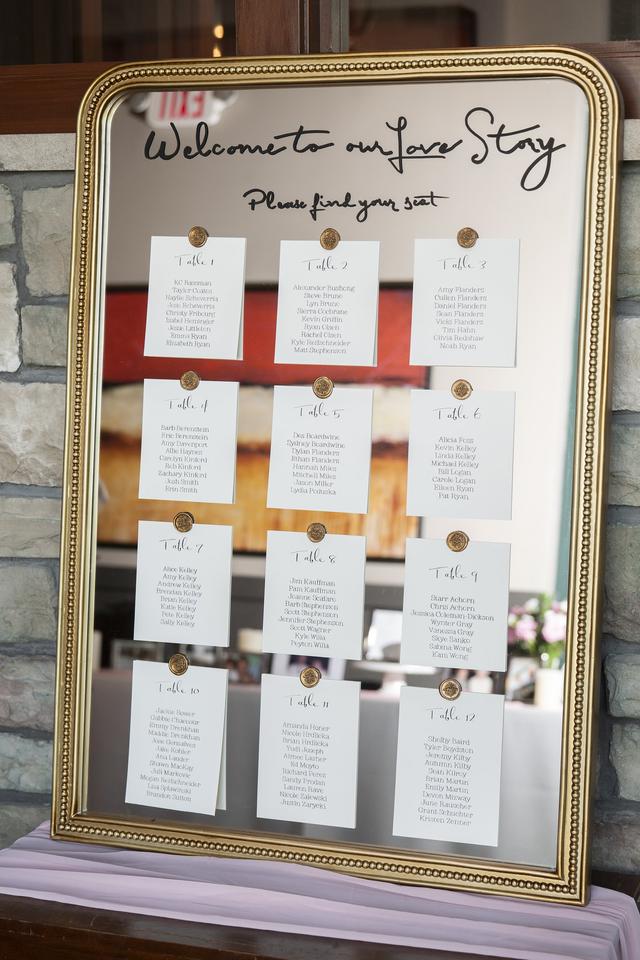 EXIT
Welcome to our Love Story
Please find your seat
Table 1
KC Bannman
Taylor Coates
Haylie Echeverria
Jose Echeverria
Christy Fribourg
Isabel Heminger
Jesse Littleton
Emma Ryan
Elizabeth Ryan
Table 2
Alexander Bushong
Steve Brune
Lyn Brune
Sierra Cochrane
Kevin Griffin
Ryan Olsen
Rachel Olsen
Kyle Reifschneider
Matt Stephenson
Table 3
Amy Flanders
Cullen Flanders
Daniel Flanders
Sean Flanders
Vicki Flanders
Tim Hahn
Olivia Redshaw
Noah Ryan
Table 4
Barb Berenstein
Eric Berenstein
Amy Davenport
Allie Haynes
Carolyn Kinford
Rob Kinford
Zachary Kinford
Josh Smith
Erin Smith
Table 5
Dez Beardwine
Sydney Beardwine
Dylan Flanders
Ethan Flanders
Hannah Miles
Mitchell Miles
Jason Miller
Lydia Poduska
Table 6
Alicia Foss
Kevin Kelley
Linda Kelley
Michael Kelley
Bill Logan
Carole Logan
Eileen Ryan
Pat Ryan
Table 7
Alice Kelley
Amy Kelley
Andrew Kelley
Brendan Kelley
Brian Kelley
Katie Kelley
Pete Kelley
Sally Kelley
Table 8
Jim Kauffman
Pam Kauffman
Joanne Scafaro
Barb Stephenson
Scott Stephenson
Jennifer Stephenson
Scott Wagner
Kyle Willa
Peyton Willa
Table 9
Starr Achorn
Chris Achorn
Jessica Coleman-Dickson
Wynter Gray
Vanessa Gray
Skye Sanko
Sabina Wong
Kam Wong
Table 10
Jackie Bower
Gabbie Chacour
Emmy Drenkhan
Maddie Drenkhan
Jose Gonsalves
Jake Kohler
Ana Lauder
Shawn MacKay
Juli Markovic
Megan Reifschneider
Lisa Splawinski
Brandon Sutton
Table 11
Amanda Huner
Nicole Hrdlicka
Brian Hrdlicka
Yudi Joseph
Aimee Lauher
Ed Moyto
Richard Perez
Sandy Prodan
Lauren Rave
Nicole Zalewski
Justin Zarycki
Table 12
Shelby Baird
Tyler Boydston
Jeremy Kilty
Autumn Kilty
Sean Kilrey
Brian Martin
Emily Martin
Devon Mizway
June Rauscher
Grant Schuchter
Kristen Zenner